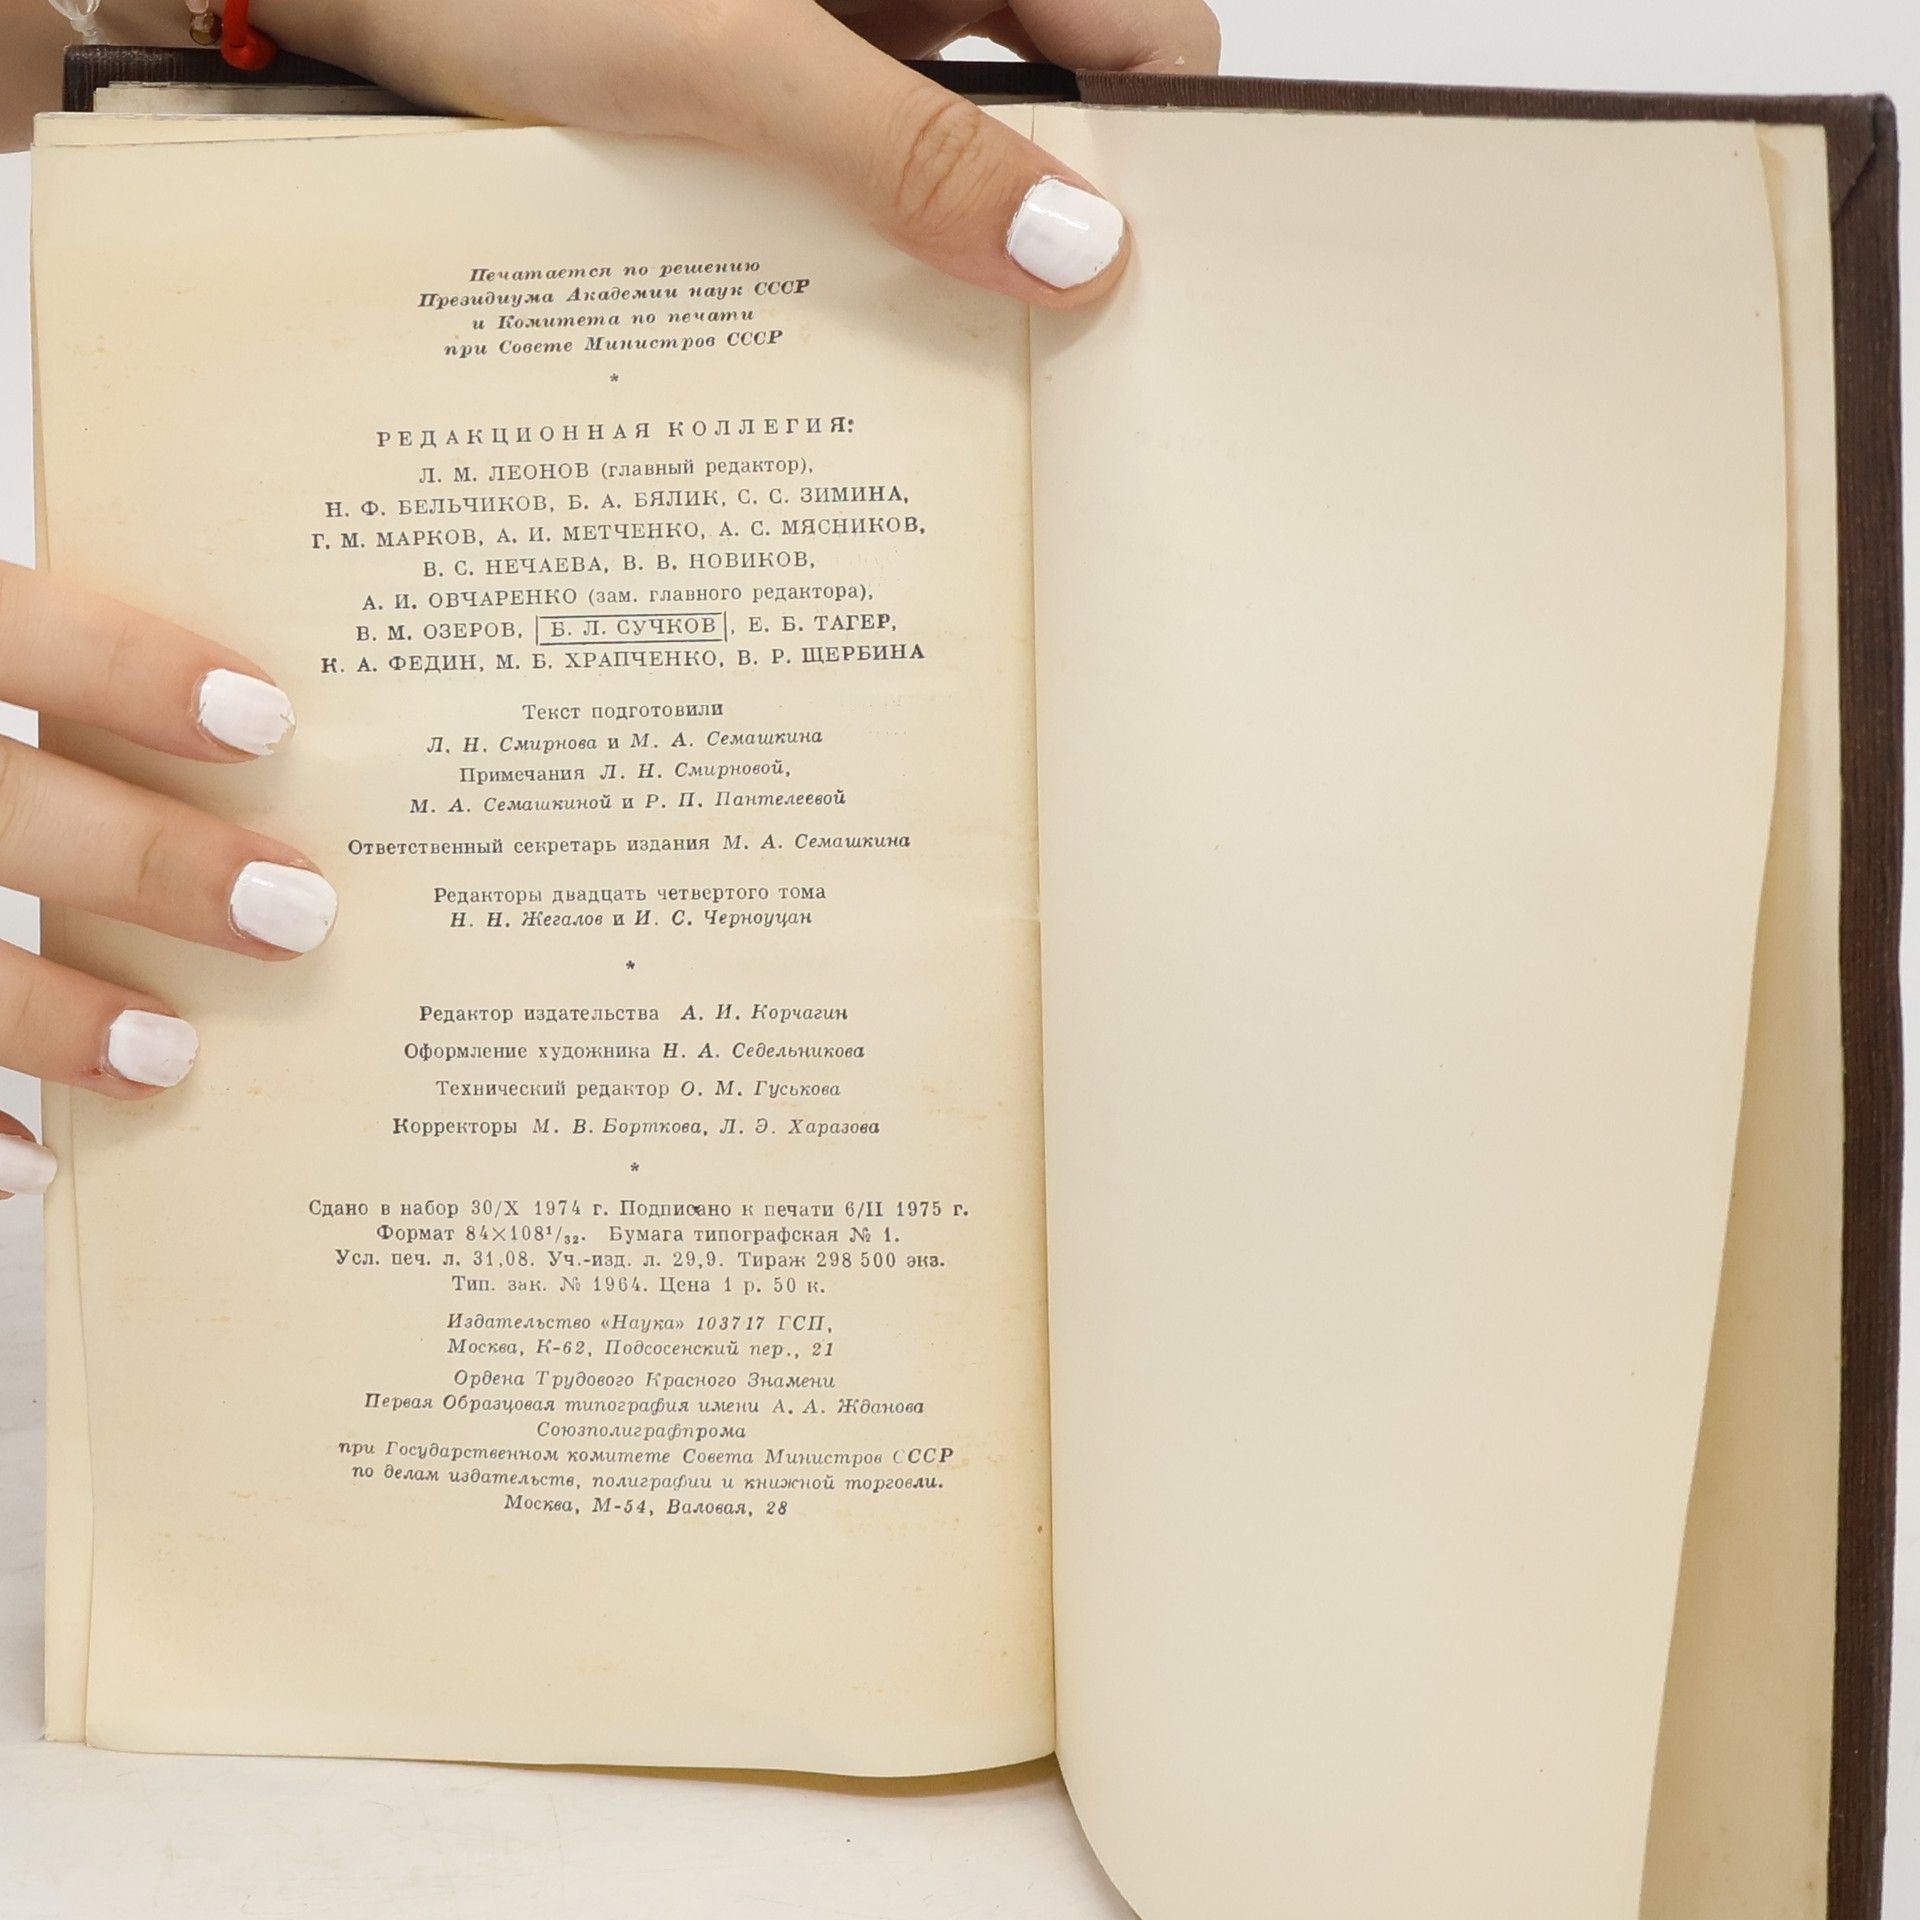 Печатается по решению
Президиума Академии наук СССР
и Комитета по печати
при Совете Министров СССР
*
РЕДАКЦИОННАЯ КОЛЛЕГИЯ:
Л. М. ЛЕОНОВ (главный редактор),
Н. Ф. БЕЛЬЧИКОВ, Б. А. БЯЛИК, С. С. ЗИМИНА,
Г. М. МАРКОВ, А. И. МЕТЧЕНКО, А. С. МЯСНИКОВ,
В. С. НЕЧАЕВА, В. В. НОВИКОВ,
А. И. ОВЧАРЕНКО (зам. главного редактора),
В. М. ОЗЕРОВ, Б. Л. СУЧКОВ, Е. Б. ТАГЕР,
К. А. ФЕДИН, М. Б. ХРАПЧЕНКО, В. Р. ЩЕРБИНА
Текст подготовили
Л. Н. Смирнова и М. А. Семашкина
Примечания Л. Н. Смирновой,
М. А. Семашкиной и Р. П. Пантелеевой
Ответственный секретарь издания М. А. Семашкина
Редакторы двадцать четвертого тома
Н. Н. Жегалов и И. С. Черноуцан
*
Редактор издательства А. И. Корчагин
Оформление художника Н. А. Седельникова
Технический редактор О. М. Гуськова
Корректоры М. В. Борткова, Л. Э. Харазова
*
Сдано в набор 30/X 1974 г. Подписано к печати 6/II 1975 г.
Формат 84×108¹/₃₂. Бумага типографская № 1.
Усл. печ. л. 31,08. Уч.-изд. л. 29,9. Тираж 298 500 экз.
Тип. зак. № 1964. Цена 1 р. 50 к.
Издательство «Наука» 103717 ГСП,
Москва, К-62, Подсосенский пер., 21
Ордена Трудового Красного Знамени
Первая Образцовая типография имени А. А. Жданова
Союзполиграфпрома
при Государственном комитете Совета Министров СССР
по делам издательств, полиграфии и книжной торговли.
Москва, М-54, Валовая, 28